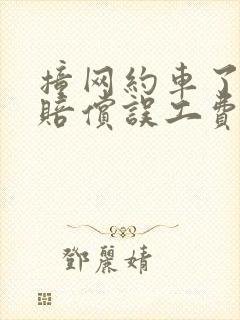 撞网約車了
賠償誤工費
鄧麗婧